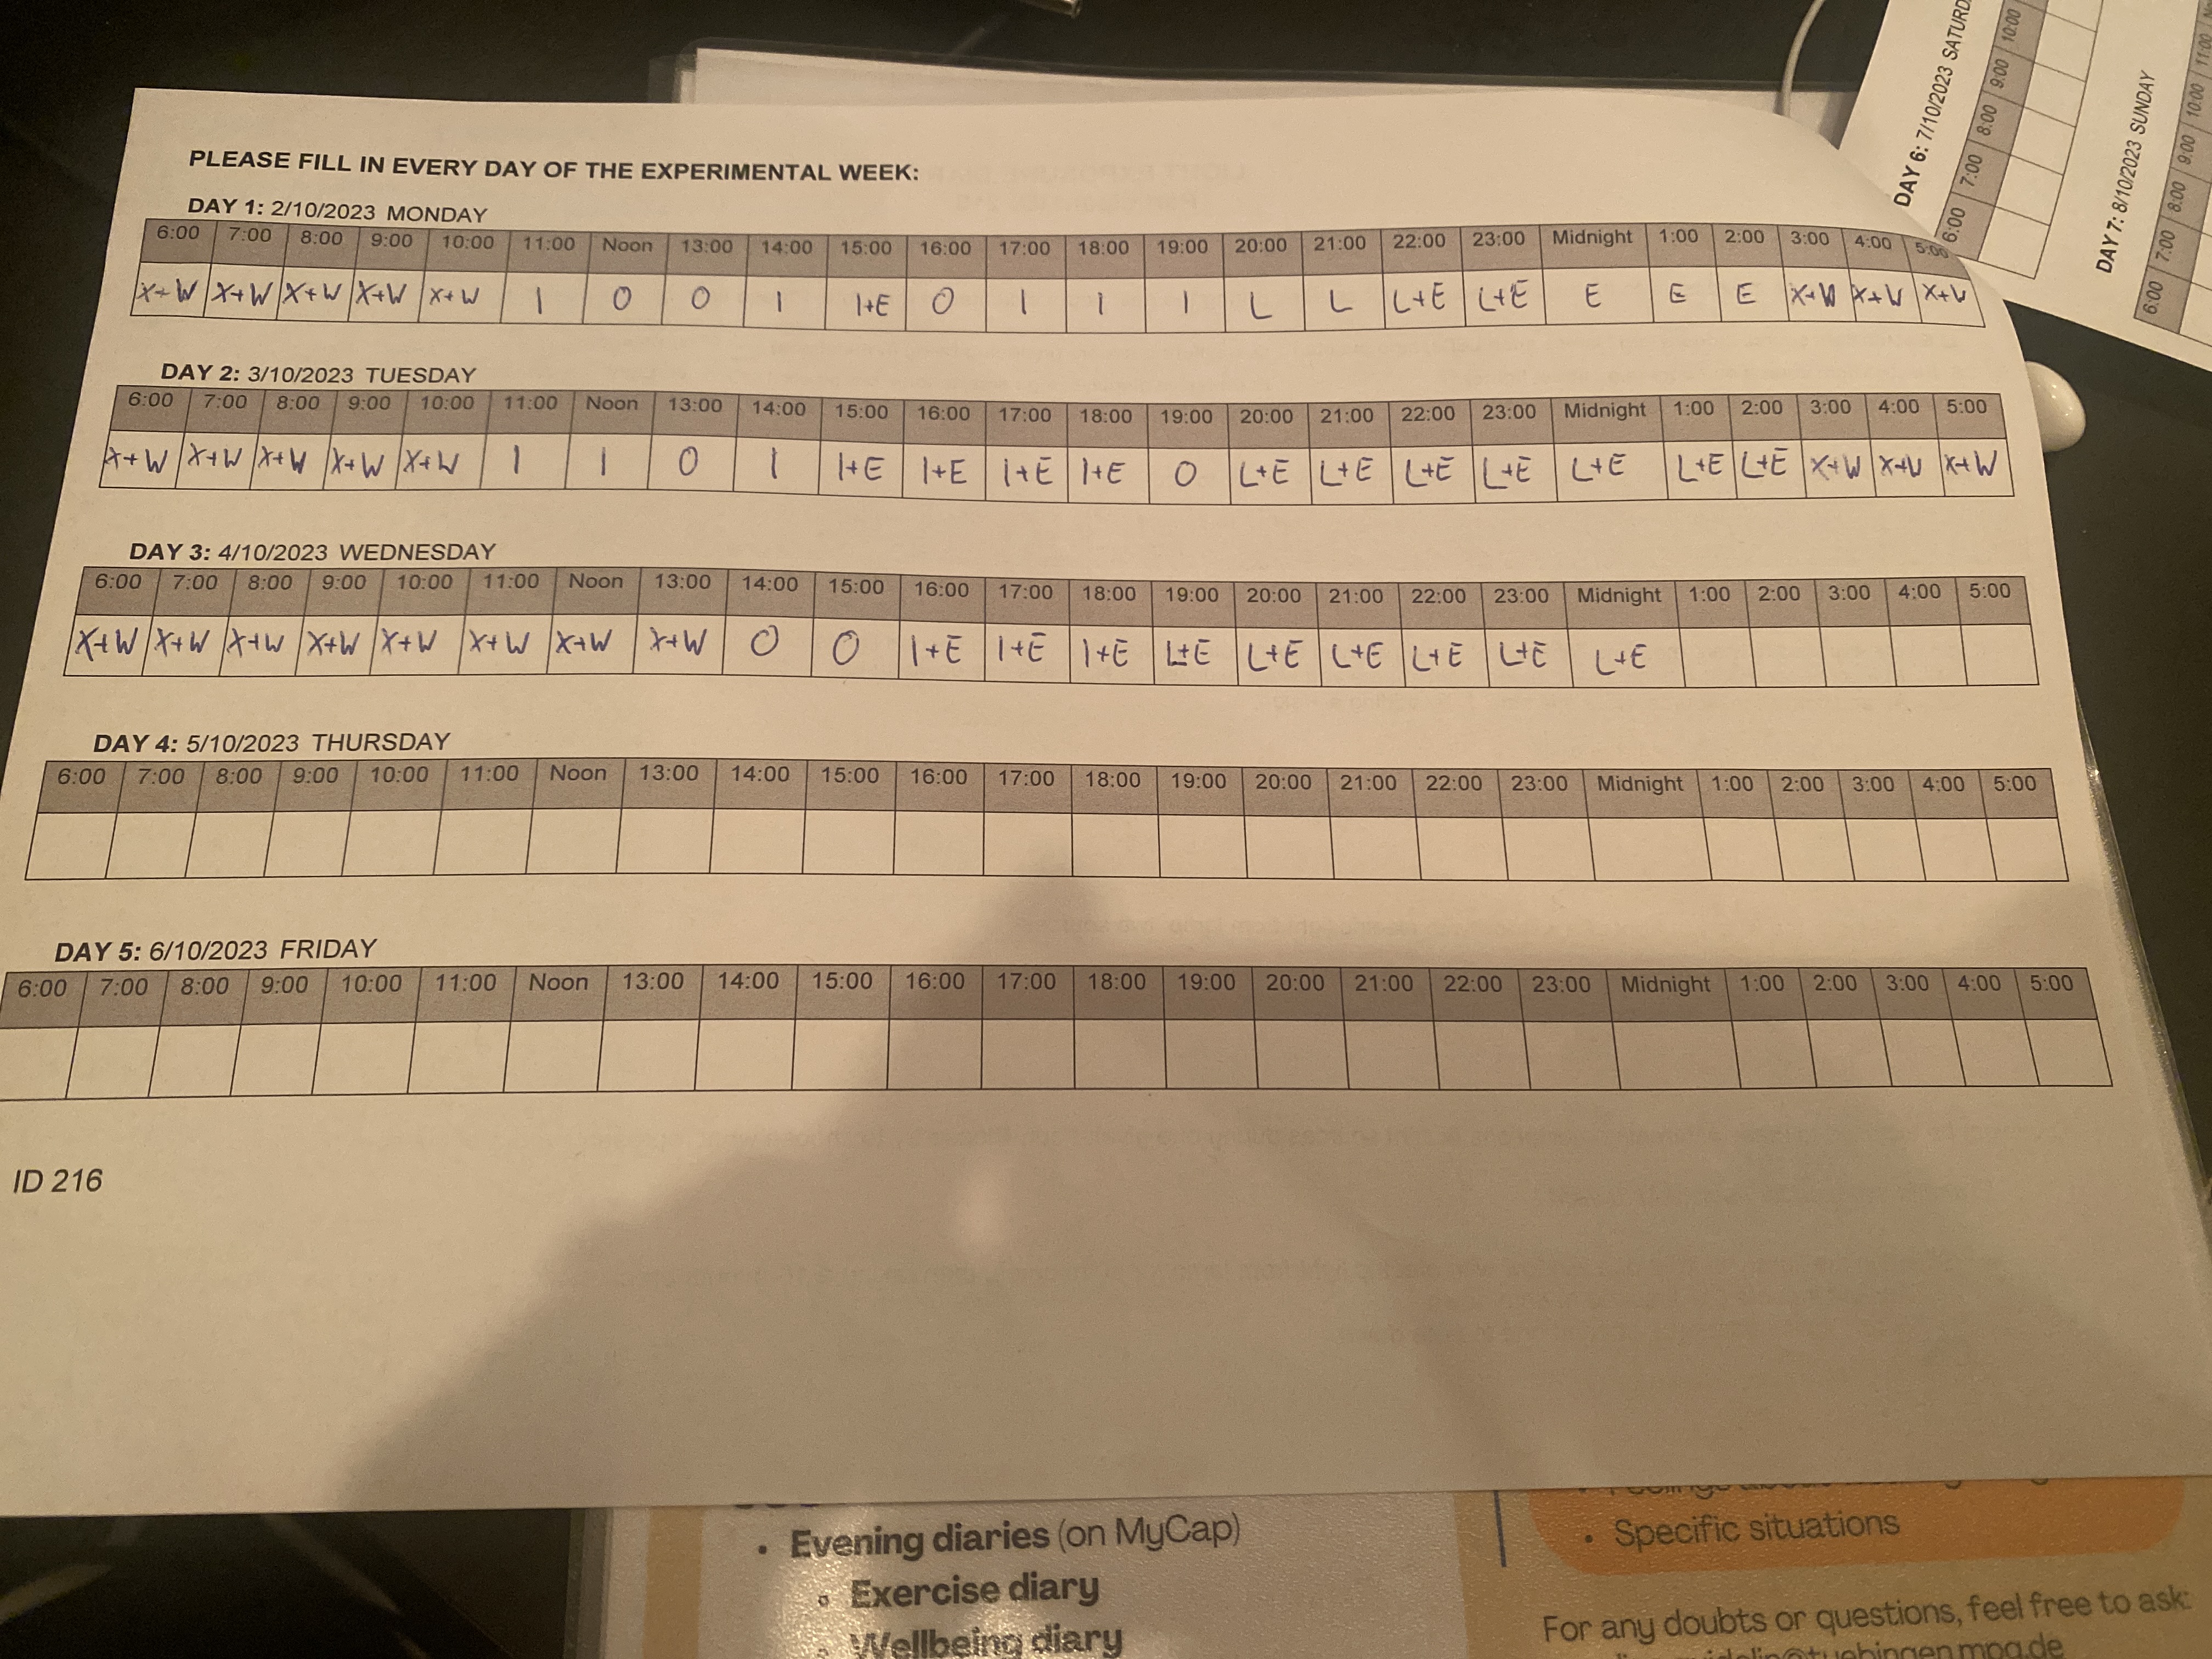 PLEASE FILL IN EVERY DAY OF THE EXPERIMENTAL WEEK:
DAY 1: 2/10/2023 MONDAY
6:00 7:00 8:00 9:00 10:00 11:00 Noon 13:00 14:00 15:00 16:00 17:00 18:00 19:00 20:00 21:00 22:00 23:00 Midnight 1:00 2:00 3:00 4:00 5:00
X+W X+W X+W X+W X+W I O O I I+E O I I I L L L+E L+E E E E X+W X+W X+W
DAY 2: 3/10/2023 TUESDAY
6:00 7:00 8:00 9:00 10:00 11:00 Noon 13:00 14:00 15:00 16:00 17:00 18:00 19:00 20:00 21:00 22:00 23:00 Midnight 1:00 2:00 3:00 4:00 5:00
X+W X+W X+W X+W X+W I I O I I+E I+E I+E I+E O L+E L+E L+E L+E L+E L+E L+E X+W X+W X+W
DAY 3: 4/10/2023 WEDNESDAY
6:00 7:00 8:00 9:00 10:00 11:00 Noon 13:00 14:00 15:00 16:00 17:00 18:00 19:00 20:00 21:00 22:00 23:00 Midnight 1:00 2:00 3:00 4:00 5:00
X+W X+W X+W X+W X+W X+W X+W X+W O O I+E I+E I+E L+E L+E L+E L+E L+E L+E
DAY 4: 5/10/2023 THURSDAY
6:00 7:00 8:00 9:00 10:00 11:00 Noon 13:00 14:00 15:00 16:00 17:00 18:00 19:00 20:00 21:00 22:00 23:00 Midnight 1:00 2:00 3:00 4:00 5:00
DAY 5: 6/10/2023 FRIDAY
6:00 7:00 8:00 9:00 10:00 11:00 Noon 13:00 14:00 15:00 16:00 17:00 18:00 19:00 20:00 21:00 22:00 23:00 Midnight 1:00 2:00 3:00 4:00 5:00
ID 216
DAY 6: 7/10/2023
6:00 7:00 8:00 9:00 10:00
DAY 7: 8/10/2023 SUNDAY
6:00 7:00 8:00 9:00 10:00 11:00
• Evening diaries (on MyCap)
Exercise diary
Wellbeing diary
• Specific situations
For any doubts or questions, feel free to ask: